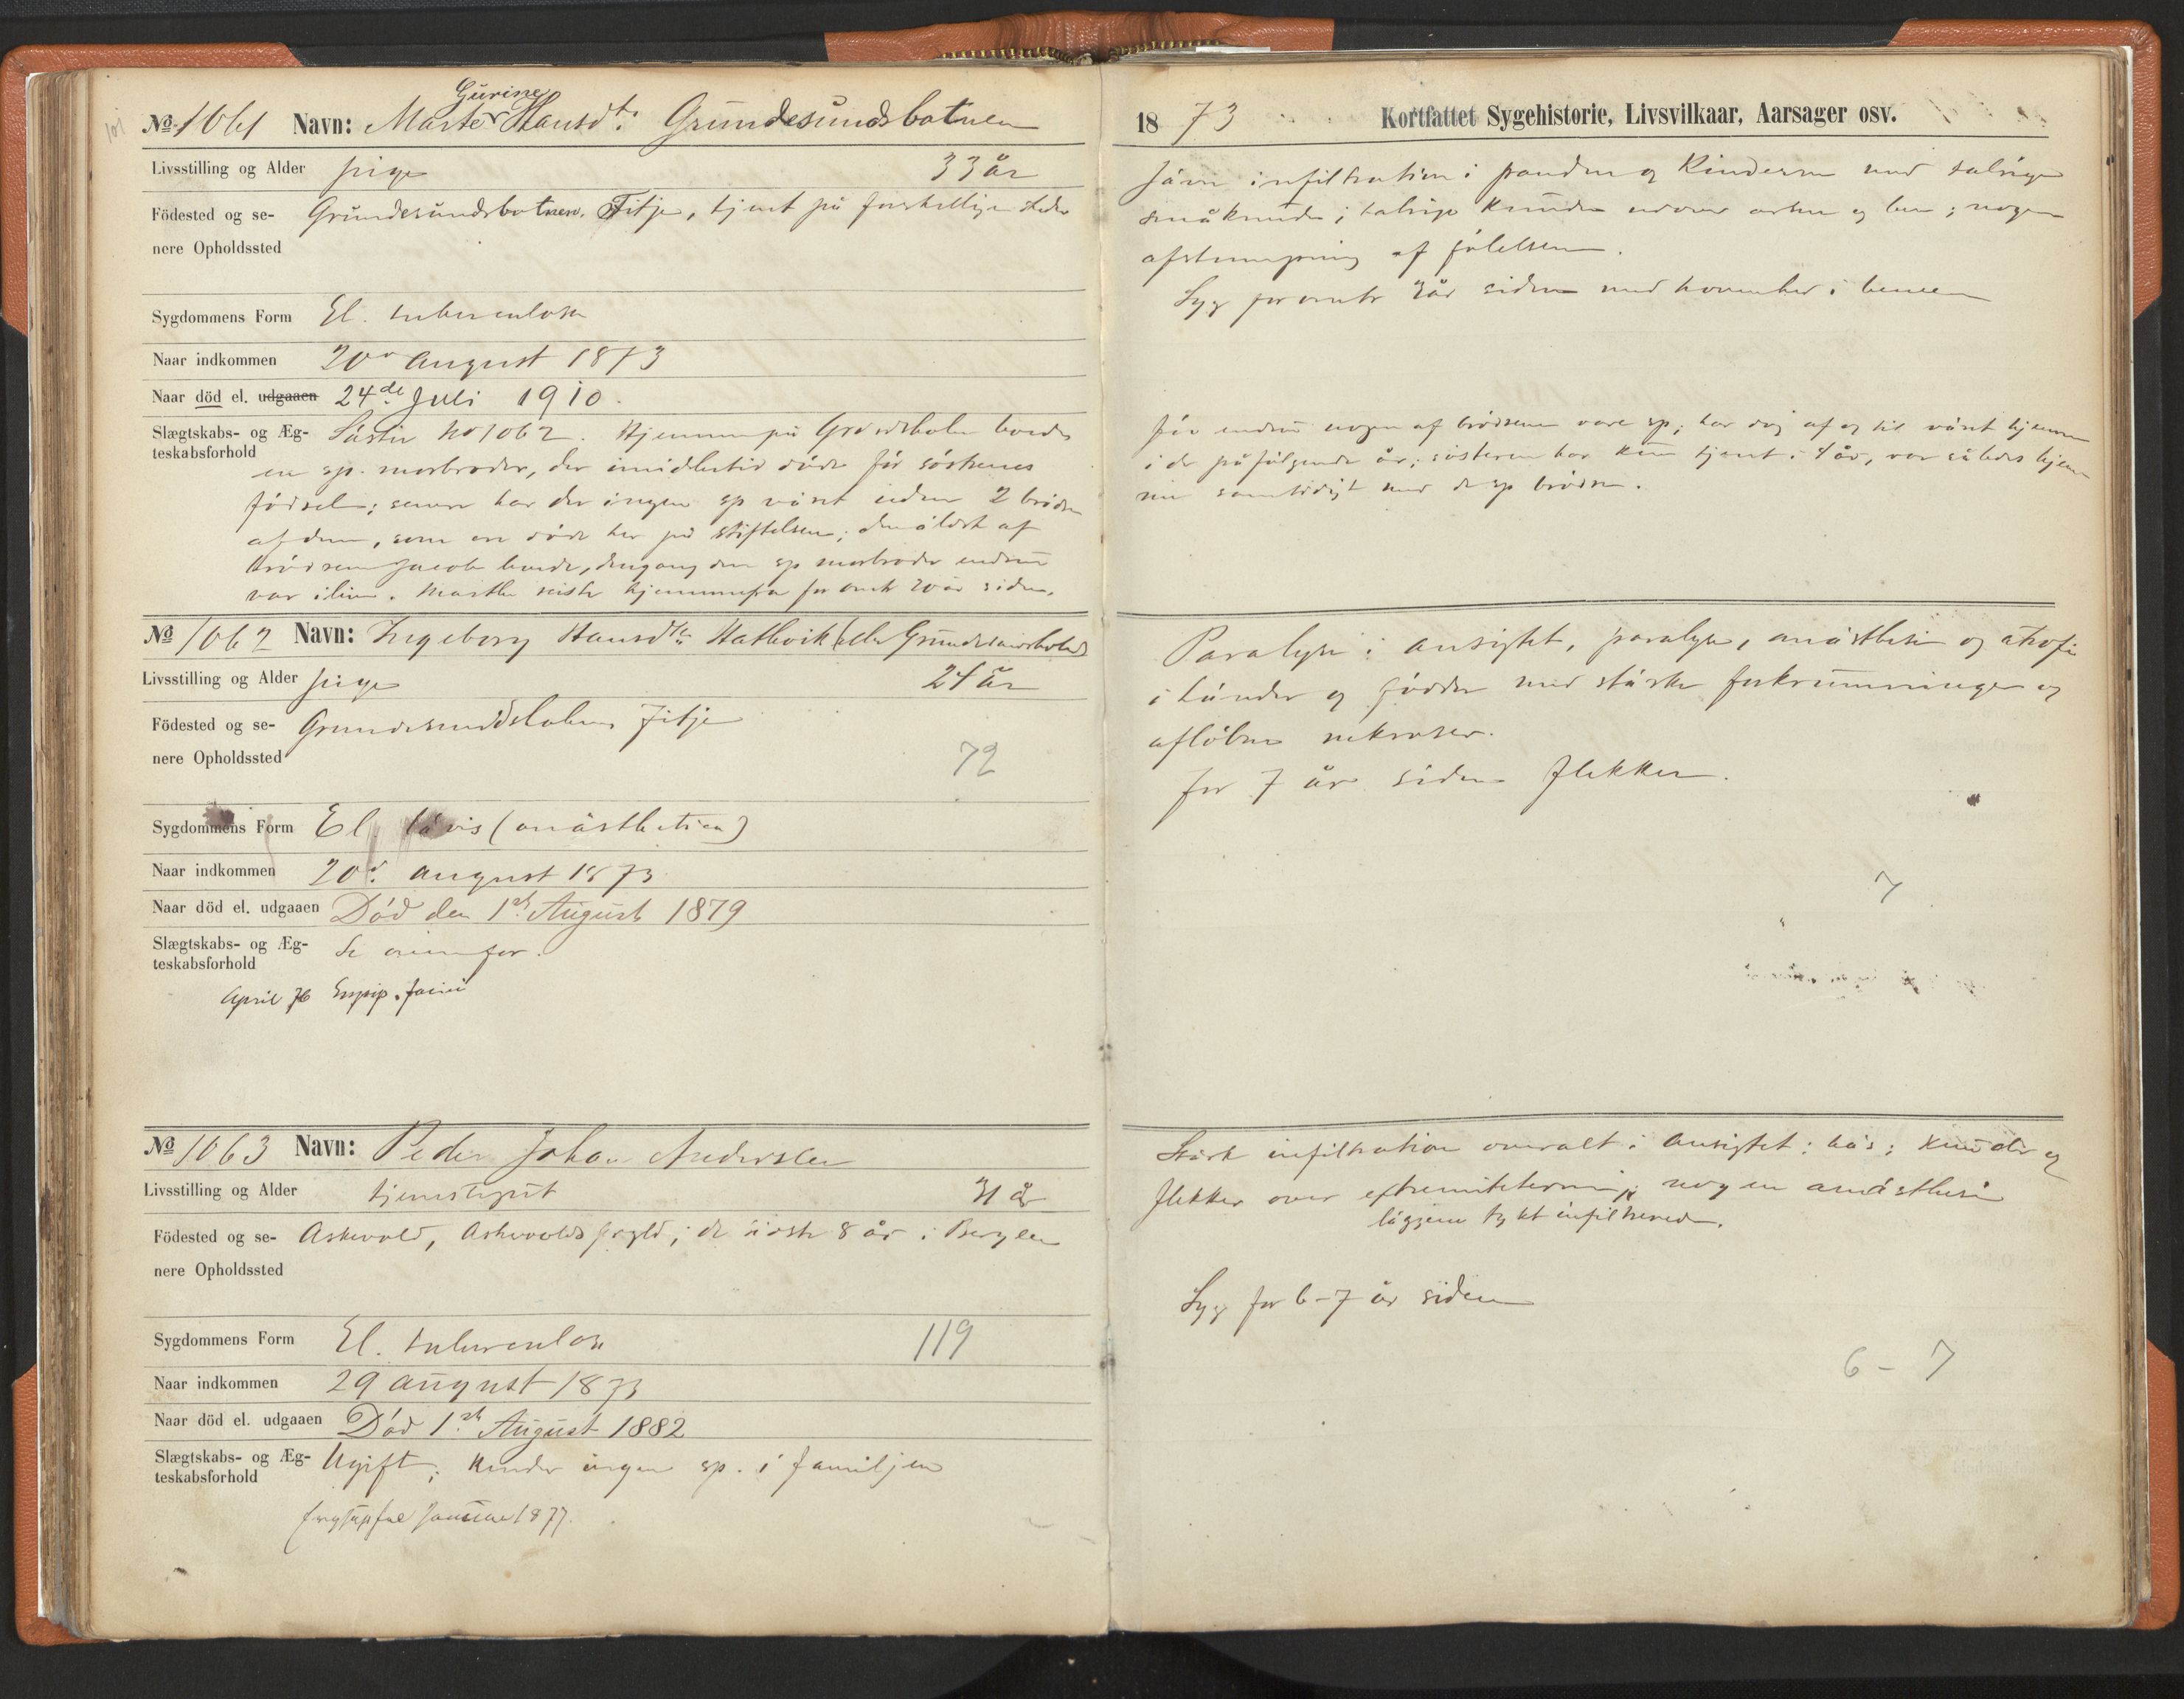 101
No 1061 Navn: Marte Gurine Hansdtr Grundesundsbotnen
Livsstilling og Alder pige 33 år
Födested og se- Grundesundsbotnen, Fitje, tjent på forskellige steder
nere Opholdssted
Sygdommens Form El. tuberculosa
Naar indkommen 20de august 1873
Naar död el. udgaaen 24de Juli 1910.
Slægtskabs- og Æg- Söster No 1062. Hjemme på boede
teskabsforhold en sp. morbroder, der imidlertid döde för söstrenes
födsel; senere har der ingen sp värit uden 2 brödre
af dem, som ere döde her på stiftelsen; den äldste af
brödrene Jacob levede, dengang den sp morbroder endnu
var ilive. Marthe reiste hjemmefra for omtr 20 år siden.
No 1062 Navn: Ingeborg Hansdtr Hatlevik (eller
Livsstilling og Alder pige 24 år
Födested og se- Grundesundsbotnen Fitje
nere Opholdssted
72
Sygdommens Form El. lävis (anästhetica)
Naar indkommen 20de august 1873
Naar död el. udgaaen Död den 1ste August 1879
Slægtskabs- og Æg- Se ovenfor.
teskabsforhold
April 76
No 1063 Navn: Peder Johan Andersen
Livsstilling og Alder tjenestegut 31 år
Födested og se- Askevold, Askevolds prgld; de sidste 8 år i Bergen
nere Opholdssted
Sygdommens Form El. tuberculosa 119
Naar indkommen 29 august 1873
Naar död el. udgaaen Död 1ste August 1882
Slægtskabs- og Æg- Ugift; kender ingen sp. i familjen
teskabsforhold
1877.
1873 Kortfattet Sygehistorie, Livsvilkaar, Aarsager osv.
Jävn infiltration i panden og kinderne med talrige
småknuder; talrige knuder udover arme og ben; nogen
afstumpning af fölelsen.
Syg for omtr 3 år siden med hovenhed i benene
För endnu nogen af brödrene vare sp; har dog af og til värit hjemme
i de påfölgende år; sösteren har kun tjent i 1 år, var således hjem-
me samtidigt med de sp brödre.
Paralyse i ansigtet, paralyse, anästhesi og atrofi
i händer og födder med stärke forkrumninger og
aflöbne nekroser.
For 7 år siden flekker.
7
Stärk infiltration overalt i ansigtet; häs; knuder og
flekker over extremiteterne; nogen anästhesi
läggene tykt infiltrerede.
Syg for 6-7 år siden
6 - 7